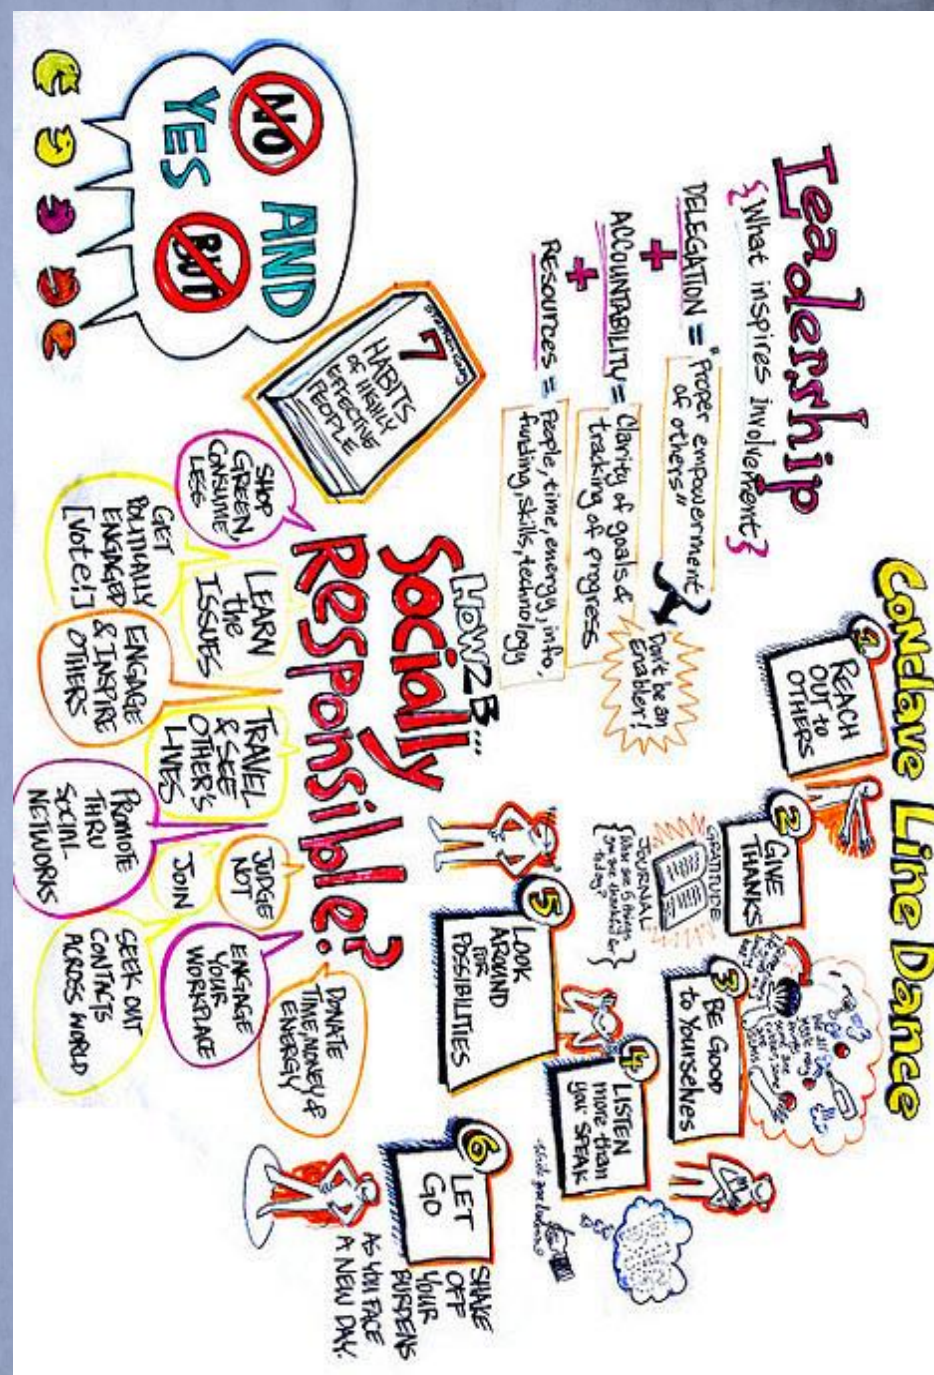 Leadership
{What inspires involvement}
DELEGATION = "Proper empowerment
of others"
Don't be an
Enabler!
+
ACCOUNTABILITY = Clarity of goals &
tracking of progress
+
RESOURCES = People, time, energy, info,
funding, skills, technology
NO AND
YES BUT
7
HABITS
OF HIGHLY
EFFECTIVE
PEOPLE
HOW2B...
Socially
Responsible?
SHOP
GREEN,
CONSUME
LESS
LEARN
the
ISSUES
GET
POLITICALLY
ENGAGED
[Vote!]
ENGAGE
& INSPIRE
OTHERS
TRAVEL
& SEE
OTHER'S
LIVES
PROMOTE
THRU
SOCIAL
NETWORKS
JUDGE
NOT
JOIN
ENGAGE
YOUR
WORKPLACE
SEEK OUT
CONTACTS
ACROSS WORLD
DONATE
TIME, MONEY &
ENERGY
Conclave Line Dance
1
REACH
OUT to
OTHERS
2
GIVE
THANKS
GRATITUDE
JOURNAL
{What are 5 things
you are thankful for
today?}
3
BE GOOD
to Yourselves
4
LISTEN
more than
you SPEAK
5
LOOK
AROUND
FOR
POSSIBILITIES
6
LET
GO
SHAKE
OFF
YOUR
BURDENS
AS YOU FACE
A NEW DAY.